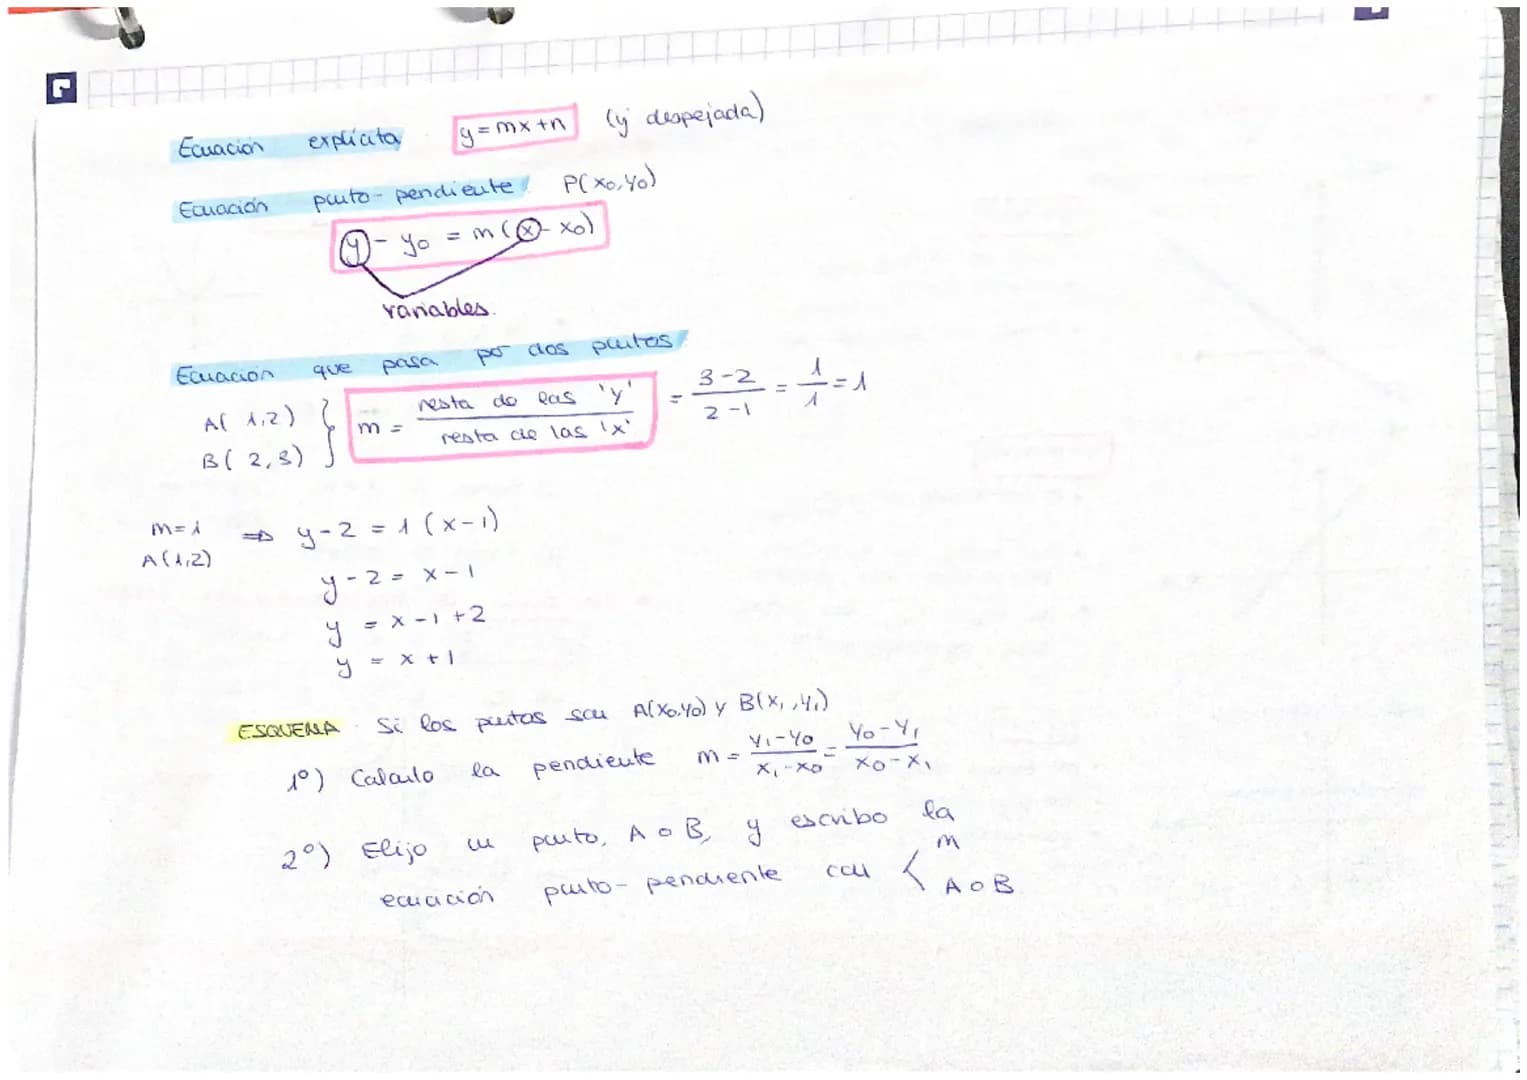 Ecuación explícita y = mx + n (y despejada)
Ecuación punto-pendiente P(x₀, y₀)
y - y₀ = m (x - x₀)
variables.
Ecuación que pasa por dos puntos
A( 1,2) } m = resta de las 'y' / resta de las 'x' = 3-2 / 2-1 = 1/1 = 1
B( 2,3)
m=1 ⇒ y-2 = 1 (x-1)
A(1,2)
y-2 = x-1
y = x-1+2
y = x+1
ESQUEMA Si los puntos son A(x₀,y₀) y B(x₁,y₁)
1º) Calculo la pendiente m = y₁-y₀ / x₁-x₀ = y₀-y₁ / x₀-x₁
2º) Elijo un punto, A o B, y escribo la
ecuación punto-pendiente con < m
A o B